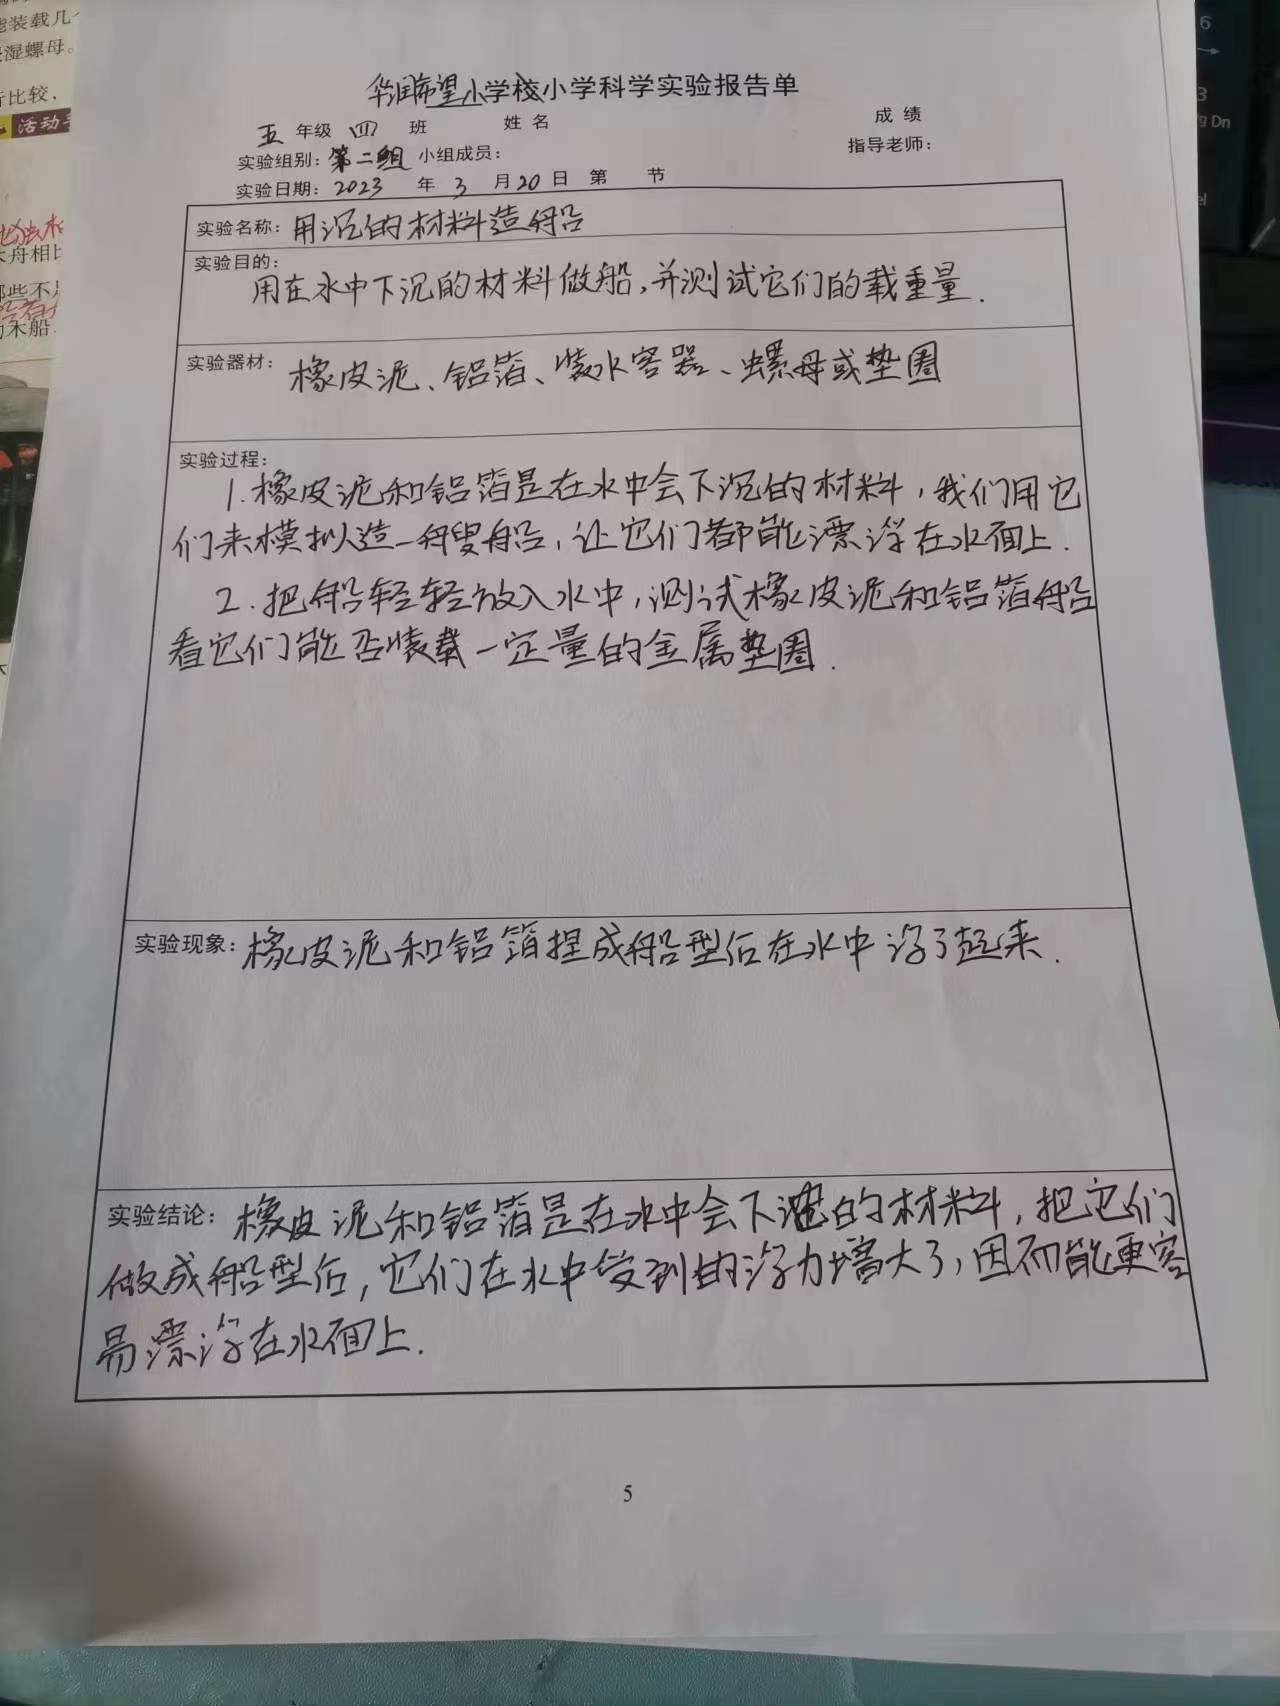 能装载几个
湿螺母。
行比较，
活动手
木舟相比
那些不是
木船
6
→
3
Pg Dn
华润希望小学校小学科学实验报告单
五 年级 四 班 姓 名 成 绩
实验组别：第二组 小组成员： 指导老师：
实验日期：2023 年 3 月 20 日 第 节
实验名称：用沉的材料造船
实验目的：
用在水中下沉的材料做船，并测试它们的载重量.
实验器材：橡皮泥、铝箔、装水容器、螺母或垫圈
实验过程：
1.橡皮泥和铝箔是在水中会下沉的材料，我们用它
们来模拟造一艘船，让它们都能漂浮在水面上.
2.把船轻轻放入水中，测试橡皮泥和铝箔船
看它们能否装载一定量的金属垫圈.
实验现象：橡皮泥和铝箔捏成船型后在水中浮了起来.
实验结论：橡皮泥和铝箔是在水中会下沉的材料，把它们
做成船型后，它们在水中受到的浮力增大了，因而能更容
易漂浮在水面上.
5